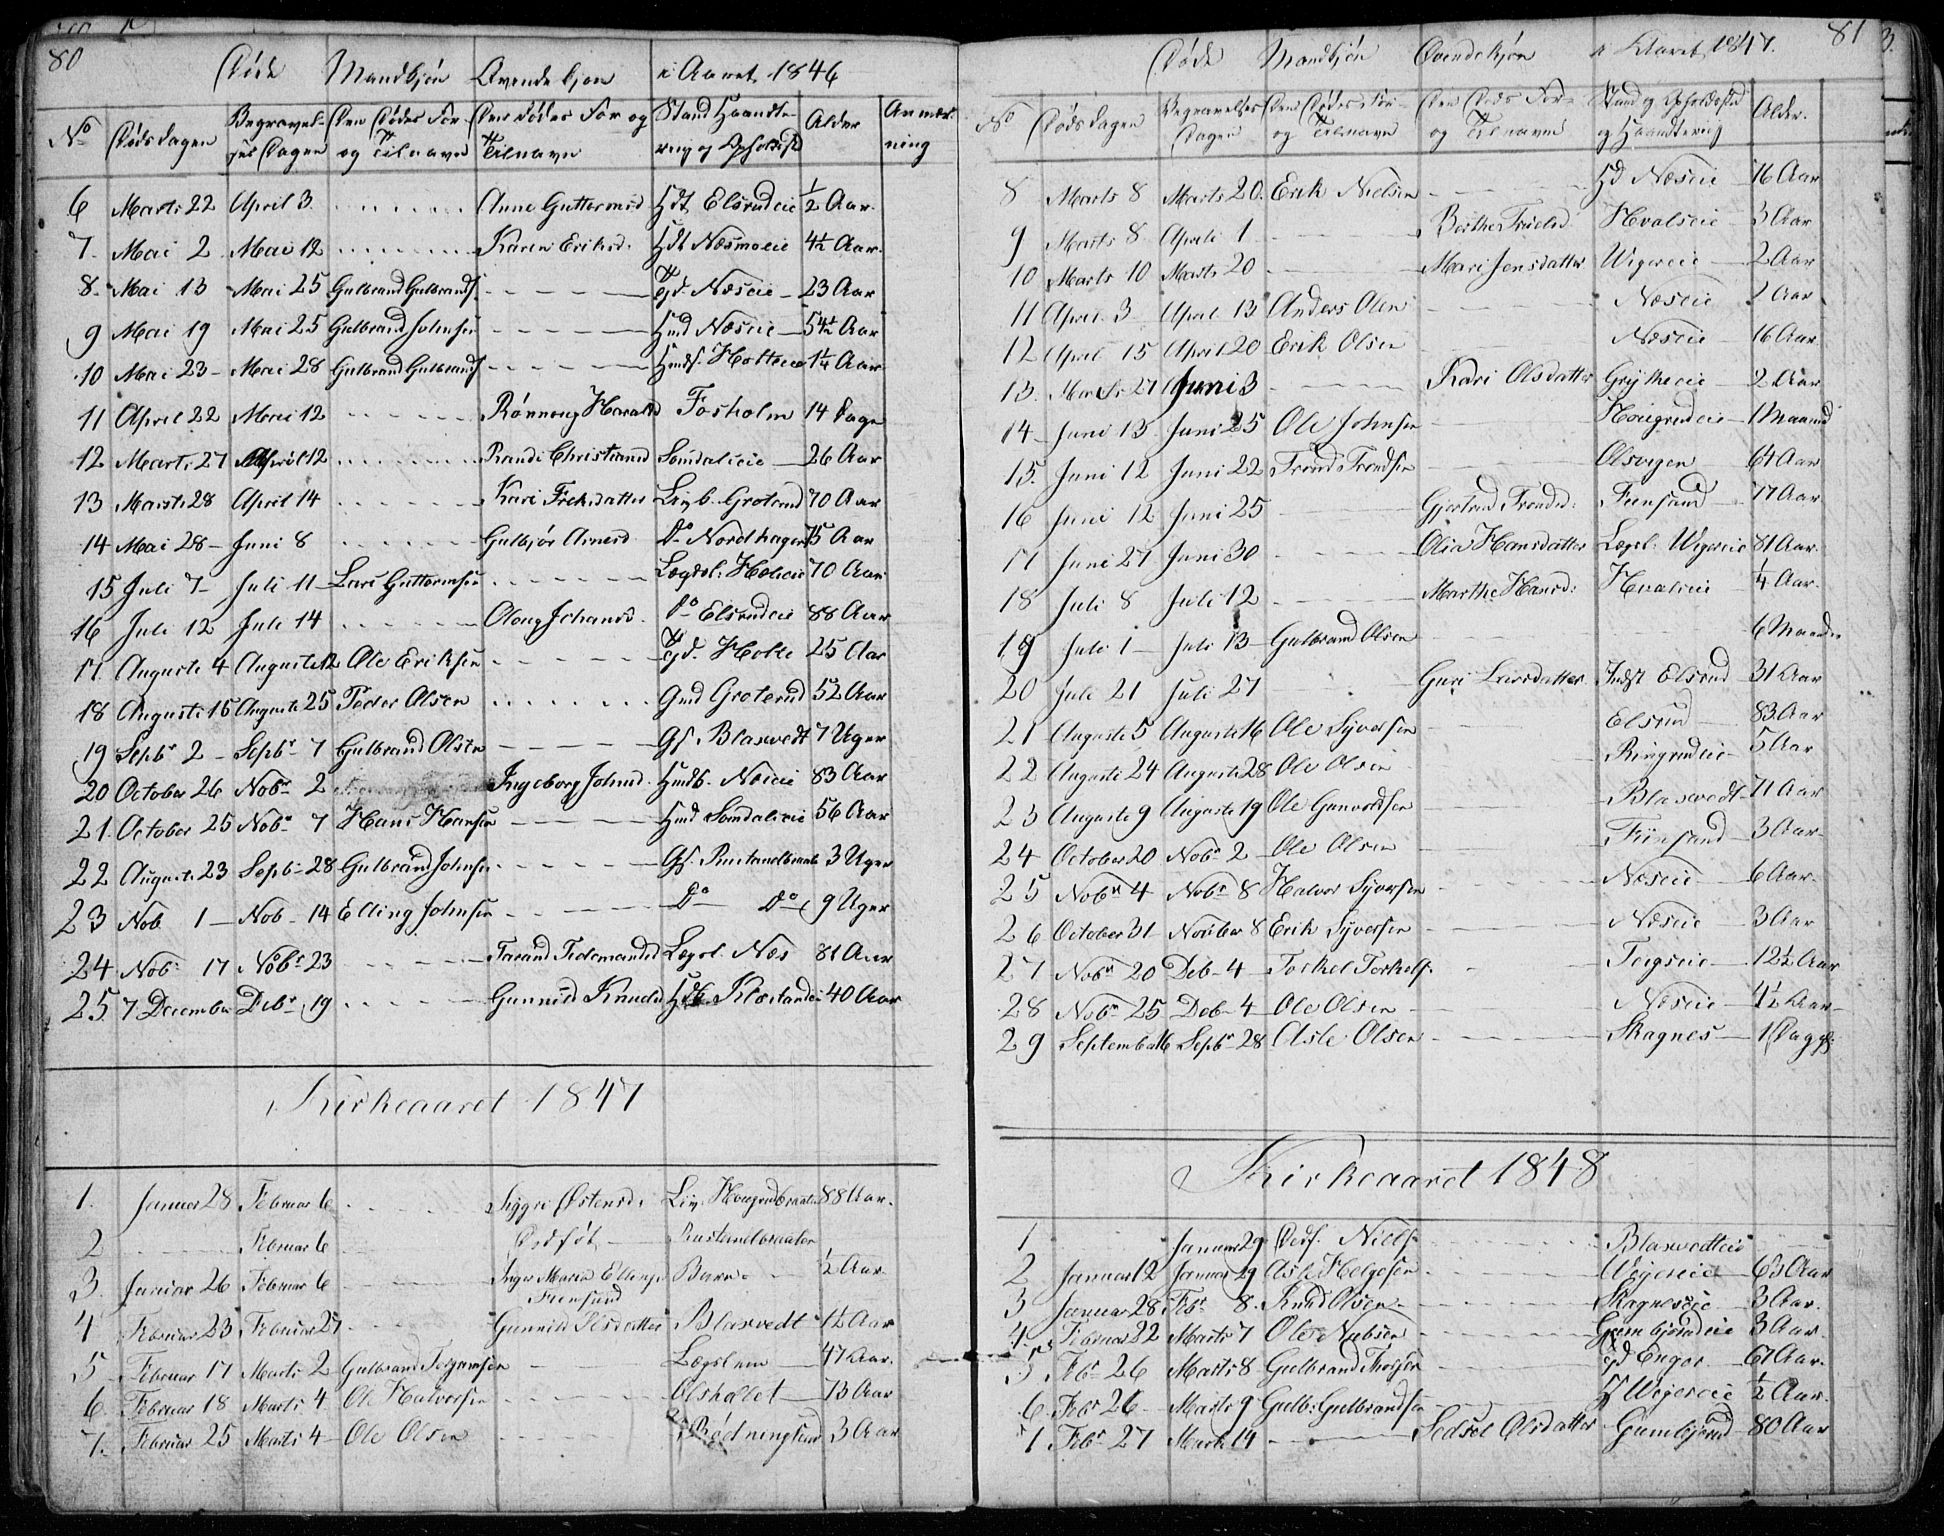 80
Døde Mandkjøn Qvendekjøn i Aaret 1846
No Dødsdagen Begravelses Dagen Den Dødes For- og Tilnavn Den Dødes For og Tilnavn Stand Haandtering og Opholdsst Alder Anmærkning
6 Marts 22 April 3 Anne Guttormsd Hdt Elsrudeie ½ Aar
7. Mai 2 Mai 12 Karen Eriksd. Hdt Næsmoeie 4½ Aar
8. Mai 13 Mai 25 Gulbrand Gulbrands. Næseie 23 Aar
9 Mai 19 Mai 25 Gulbrand Johnsen Hmd Næseie 54½ Aar
10 Mai 23 Mai 28 Gulbrand Gulbrands Hmds. Holteeie 1¼ Aar
11 April 22 Mai 12 Rønnoug Haralds Fosholm 14 Dage
12 Marts 27 April 12 Randi Christians Somdalseie 26 Aar
13 Marts 28 April 14 Kari Eriksdatter Grotrud 70 Aar
14 Mai 28 Juni 8 Gulbjør Arnesd Do Nordhagen 75 Aar
15 Juli 7 Juli 11 Lars Guttormsen Lægdsl. 70 Aar
16 Juli 12 Juli 14 Oloug Johansd. Do Elsrudeie 88 Aar
17. Auguste 4 Auguste 12 Ole Eriksen Holte 25 Aar
18 Auguste 16 Auguste 25 Peder Olsen Gmd Groterud 52 Aar
19 Sepbr 2 Sepbr 7 Gulbrand Olsen Gs. Blaxvedt 7 Uger
20 October 26 Nobr 2 Ingeborg Johnsd. Hmdb. 83 Aar
21. October 25 Nobr 7 Hans Hansen Hmd Somdalseie 56 Aar
22 Auguste 23 Sepbr 28 Gulbrand Johnsen Gs. Rustandbraate 3 Uger
23 Nob 1 Nob 14 Elling Johnsen Do Do 9 Uger
24 Nobr 17 Nobr 23 Tarand Tidemandsd Lægsl. Næs 81 Aar
25 7 December Debr 19 Gunnild Knuds 40 Aar
Kirkeaaret 1847
1. Januar 28 Februar 6 Siggri Østensd. 88 Aar.
2 Februar 6 Dødføt Rustandbraaten
3. Januar 26 Februar 6 Inger Maria Ellings Barn ½ Aar
Feensund
4 Februar 23 Februar 27 Gunnild Blaxvedt 1½ Aar
5 Februar 17 Marts 2 Gulbrand Torgersen Lægslem 47 Aar.
6. Februar 18 Marts 4 Ole Halvorsen 73 Aar
7. Februar 25 Marts 4 Ole Olsen Rødningsand 3 Aar
81
Døde Mandkjøn Qvendekjøn i Aaret 1847.
No Dødsdagen Begravelses Dagen Den Dødes For- og Tilnavn Den Døds For- og Tilnavn Stand og Opholdssted og Haandtering Alder.
8 Marts 8 Marts 20. Erik Nielsen Næseie 16 Aar
9 Marts 8 April 1 Berthe Hvalseie 3 Aar
10 Marts 10 Marts 20 Mari Jensdatter Wegereie 2 Aar
11 April 3 April 13 Anders Olen Næseie 2 Aar
12 April 15 April 20 Erik Olsen Næseie 16 Aar.
13. Marts 27 Juni 3 Kari Olsdatter 2 Aar
14 Juni 13 Juni 25 Ole Johnsen 1 Maaned
15. Juni 12 Juni 22 Trond Trondsen Olsvegen 64 Aar
16 Juni 12 Juni 25 Gjertrud Trondsd. Feensand 77 Aar
17 Juni 27 Juni 30 Olia Hansdatter Lægsl. Wegereie 81 Aar.
18 Juli 8 Juli 12 Marthe Hansd. Hvalseie ¼ Aar.
19 Juli 1 Juli 13 Gulbrand Olsen 6 Maander
20 Juli 21 Juli 27 Guri Larsdatter Indst Elsrud 31 Aar
21 Auguste 5 Auguste 16 Ole Syversen Elsrud 83 Aar
22 Auguste 24 Auguste 28 Ole Olsen Ringrudeie 5 Aar
23 Auguste 9 Auguste 19 Ole Gunvoldsen Blaxvedt 71 Aar
24 October 20 Nobr 2 Ole Olsen Finsand 3 Aar
25 Nobr 4 Nobr 8 Halvor Syversen Næseie 6 Aar
26 October 31 Novber 8 Erik Syversen Næseie 3 Aar
27 Nobr 20 Deb 4 Torkel Torkels. 12½ Aar
28 Nobr 25 Deb 4 Ole Olsen Næseie 4½ Aar
29 September 16 Sepbr 28 Asle Olsen Skagnes 1 Dag
Kirkeaaret 1848
1 Januar 29 Dødf. Niels Blaxvedteie
2 Januar 12 Januar 29 Asle Helgesen Wegereie 63 Aar
3 Januar 28 Febr 8. Knud Olsen Skagneseie 3 Aar.
4. Februar 22 Marts 7 Ole Nubsen Gumbjørudeie 3 Aar.
5 Febr 26 Marts 8 Gulbrand Engor 67 Aar.
6 Febr 26 Marts 9 Gulb: Gulbrandsen Wegereie ½ Aar.
7 Febr 27 Marts 14 Sedsel Olsdatter Gumbjørud 80 Aar